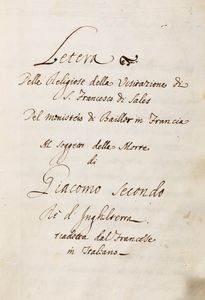 Letera
Delle Religiose della Visitazione di
S. Francesco di Sales
Del monistero di Baillor in Francia
Al Soggetto della Morte
di
Giacomo Secondo
Rè d'Inghilterra
Tradotta dal Francese
in Italiano